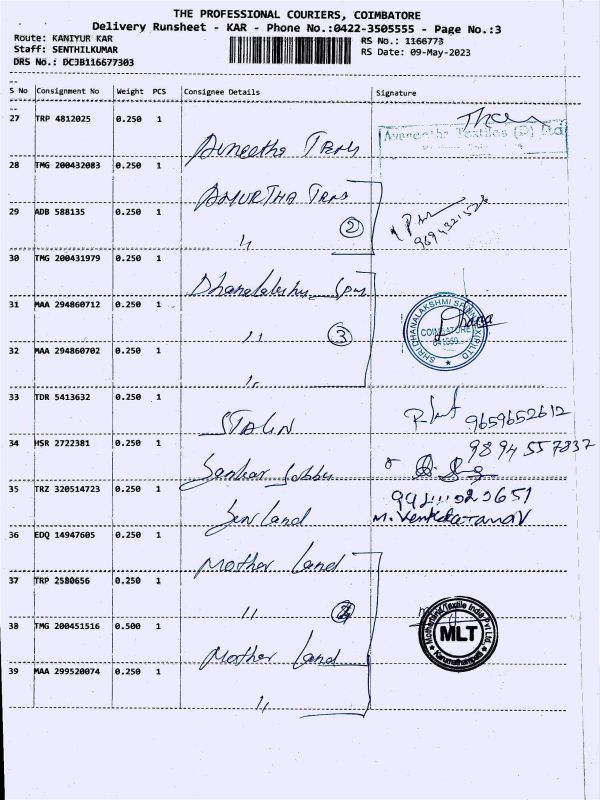 THE PROFESSIONAL COURIERS, COIMBATORE
Delivery Runsheet - KAR - Phone No.:0422-3505555 - Page No.:3
Route: KANIYUR KAR
RS No.: 1166773
Staff: SENTHILKUMAR
RS Date: 09-May-2023
DRS No.: DC3B116677303
S No Consignment No Weight PCS Consignee Details Signature
27 TRP 4812025 0.250 1
Textiles (P) Ltd
28 TMG 200432083 0.250 1
AMURTHA
29 ADB 588135 0.250 1
2
30 TMG 200431979 0.250 1
31 MAA 294860712 0.250 1
SHRI DHANALAKSHMI
3
COIMBATORE
32 MAA 294860702 0.250 1
33 TDR 5413632 0.250 1
STALIN
9659652612
34 HSR 2722381 0.250 1
9894557837
Sankar
35 TRZ 320514723 0.250 1
Land
36 EDQ 14947605 0.250 1
Mother Land
37 TRP 2580656 0.250 1
38 TMG 200451516 0.500 1
Motherland Textile India Pvt Ltd
MLT
Karumathampatti
Mother Land
39 MAA 299520074 0.250 1